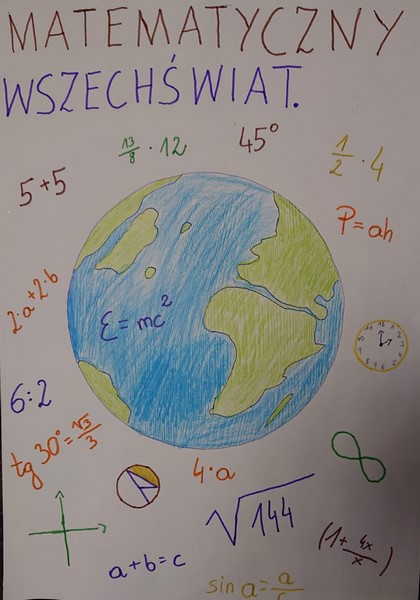 MATEMATYCZNY
WSZECHŚWIAT.
13/8 · 12
45°
1/2 · 4
5+5
P=ah
2·a+2·b
E=mc²
6:2
tg 30°=√3/3
4·a
√144
(1+4x/x)
a+b=c
sin a=a/c